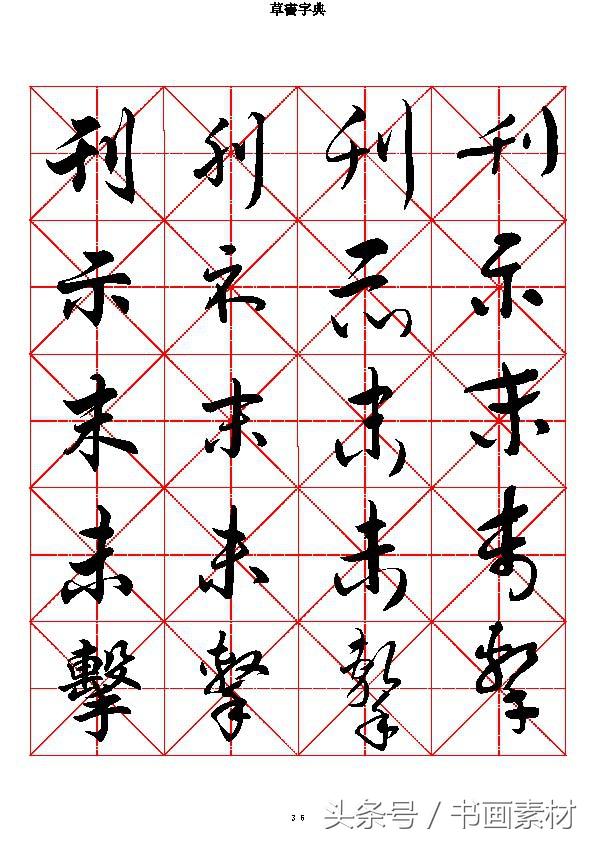 草書字典
刊 刊 刊 刊
示 示 示 示
末 末 末 末
未 未 未 未
擊 擊 擊 擊
36
头条号 / 书画素材